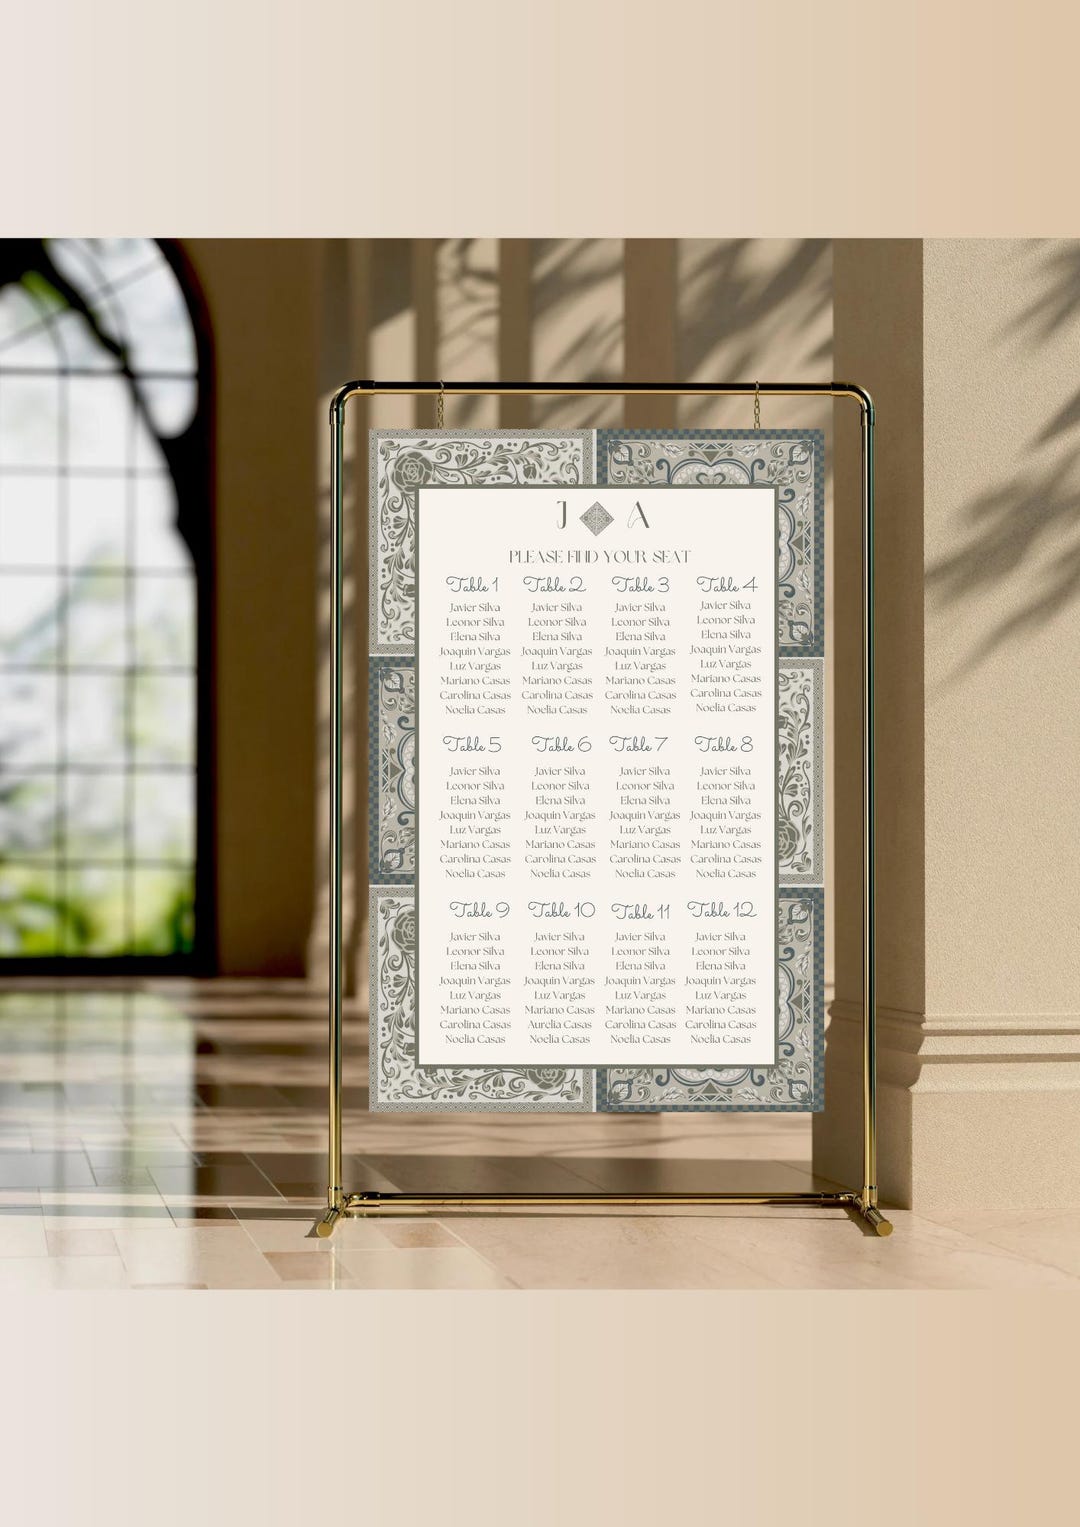 J A
PLEASE FIND YOUR SEAT
Table 1
Javier Silva
Leonor Silva
Elena Silva
Joaquin Vargas
Luz Vargas
Mariano Casas
Carolina Casas
Noelia Casas
Table 2
Javier Silva
Leonor Silva
Elena Silva
Joaquin Vargas
Luz Vargas
Mariano Casas
Carolina Casas
Noelia Casas
Table 3
Javier Silva
Leonor Silva
Elena Silva
Joaquin Vargas
Luz Vargas
Mariano Casas
Carolina Casas
Noelia Casas
Table 4
Javier Silva
Leonor Silva
Elena Silva
Joaquin Vargas
Luz Vargas
Mariano Casas
Carolina Casas
Noelia Casas
Table 5
Javier Silva
Leonor Silva
Elena Silva
Joaquin Vargas
Luz Vargas
Mariano Casas
Carolina Casas
Noelia Casas
Table 6
Javier Silva
Leonor Silva
Elena Silva
Joaquin Vargas
Luz Vargas
Mariano Casas
Carolina Casas
Noelia Casas
Table 7
Javier Silva
Leonor Silva
Elena Silva
Joaquin Vargas
Luz Vargas
Mariano Casas
Carolina Casas
Noelia Casas
Table 8
Javier Silva
Leonor Silva
Elena Silva
Joaquin Vargas
Luz Vargas
Mariano Casas
Carolina Casas
Noelia Casas
Table 9
Javier Silva
Leonor Silva
Elena Silva
Joaquin Vargas
Luz Vargas
Mariano Casas
Carolina Casas
Noelia Casas
Table 10
Javier Silva
Leonor Silva
Elena Silva
Joaquin Vargas
Luz Vargas
Mariano Casas
Aurelia Casas
Noelia Casas
Table 11
Javier Silva
Leonor Silva
Elena Silva
Joaquin Vargas
Luz Vargas
Mariano Casas
Carolina Casas
Noelia Casas
Table 12
Javier Silva
Leonor Silva
Elena Silva
Joaquin Vargas
Luz Vargas
Mariano Casas
Carolina Casas
Noelia Casas